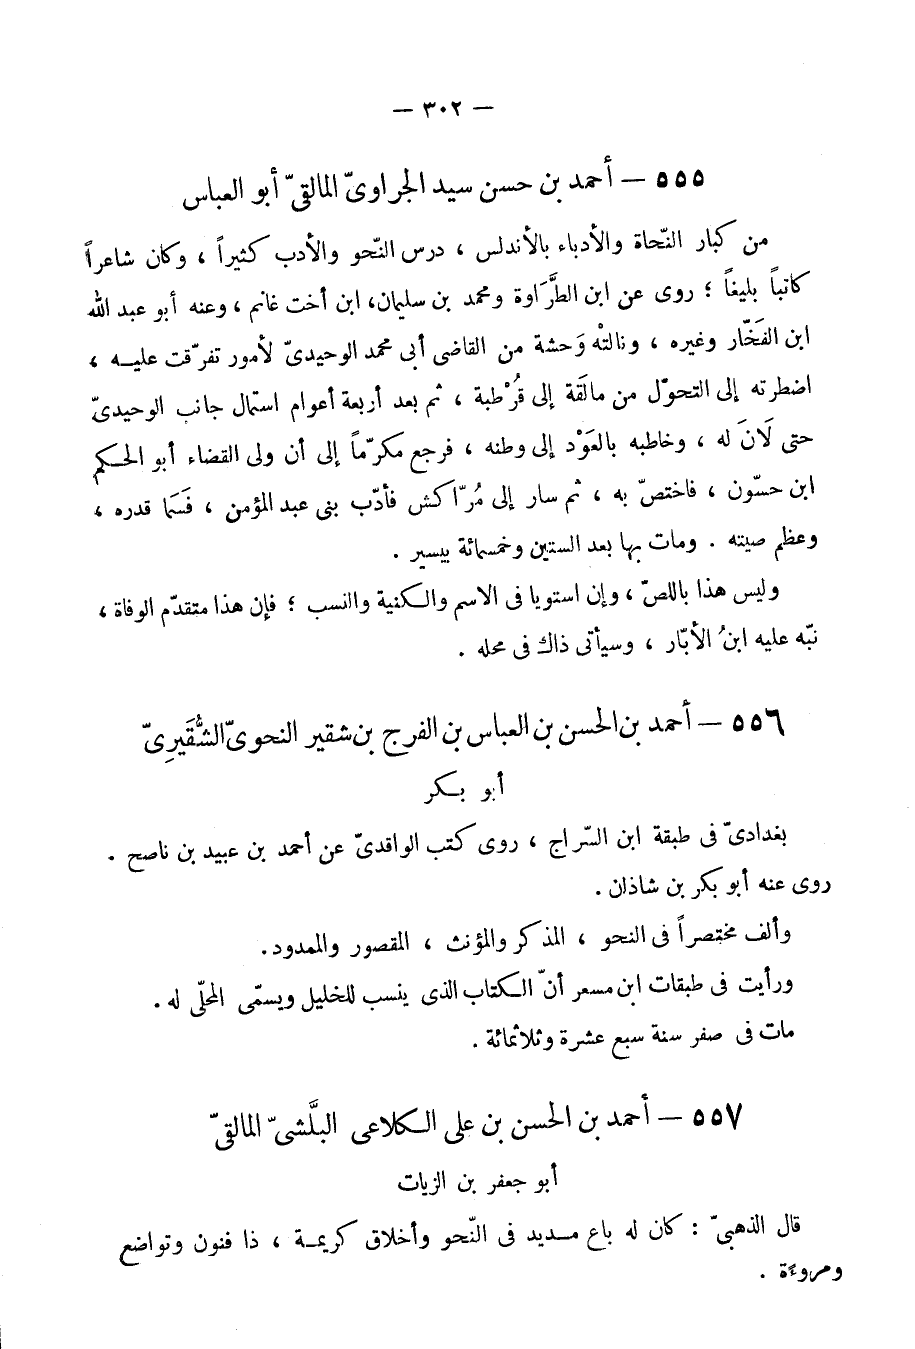 — ٣٠٢ —
٥٥٥ — أحمد بن حسن سيد الجراوىّ المالقىّ أبو العباس
من كبار النّحاة والأدباء بالأندلس ، درس النّحو والأدب كثيراً ، وكان شاعراً
كاتباً بليغاً ؛ روى عن ابن الطَّرَاوة ومحمد بن سليمان، ابن أخت غانم ، وعنه أبو عبد الله
ابن الفَخّار وغيره ، ونالتْه وَحشة من القاضى أبى محمد الوحيدىّ لأمور تفرّقت عليـه ،
اضطرته إلى التحوّل من مالَقة إلى قُرْطبة ، ثم بعد أربعة أعوام استمال جانب الوحيدىّ
حتى لَانَ له ، وخاطبه بالعَوْد إلى وطنه ، فرجع مكرّماً إلى أن ولى القضاء أبو الحـكم
ابن حسّون ، فاختصّ به ، ثم سار إلى مُرّاكش فأدّب بنى عبد المؤمن ، فَسَما قدره ،
وعظم صيته . ومات بها بعد الستين وخمسمائة بيسير .
وليس هذا باللصّ ، وإن استويا فى الاسم والـكنية والنسب ؛ فإن هذا متقدّم الوفاة ،
نبّه عليه ابنُ الأبّار ، وسيأتى ذاك فى محله .
٥٥٦ — أحمد بن الحسن بن العباس بن الفرج بن شقير النحوىّ الشُّقَيرِىّ
أبو بـكر
بغدادىّ فى طبقة ابن السّراج ، روى كتب الواقدىّ عن أحمد بن عبيد بن ناصح .
روى عنه أبو بكر بن شاذان .
وألف مختصراً فى النحو ، المذكر والمؤنث ، المقصور والممدود .
ورأيت فى طبقات ابن مسعر أنّ الـكتاب الذى ينسب للخليل ويسمّى المحلّى له .
مات فى صفر سنة سبع عشرة وثلاثمائة .
٥٥٧ — أحمد بن الحسن بن على الـكلاعى البلَّشىّ المالقىّ
أبو جعفر بن الزيات
قال الذهبىّ : كان له باع مـديد فى النّحو وأخلاق كريمـة ، ذا فنون وتواضع
ومروءة .